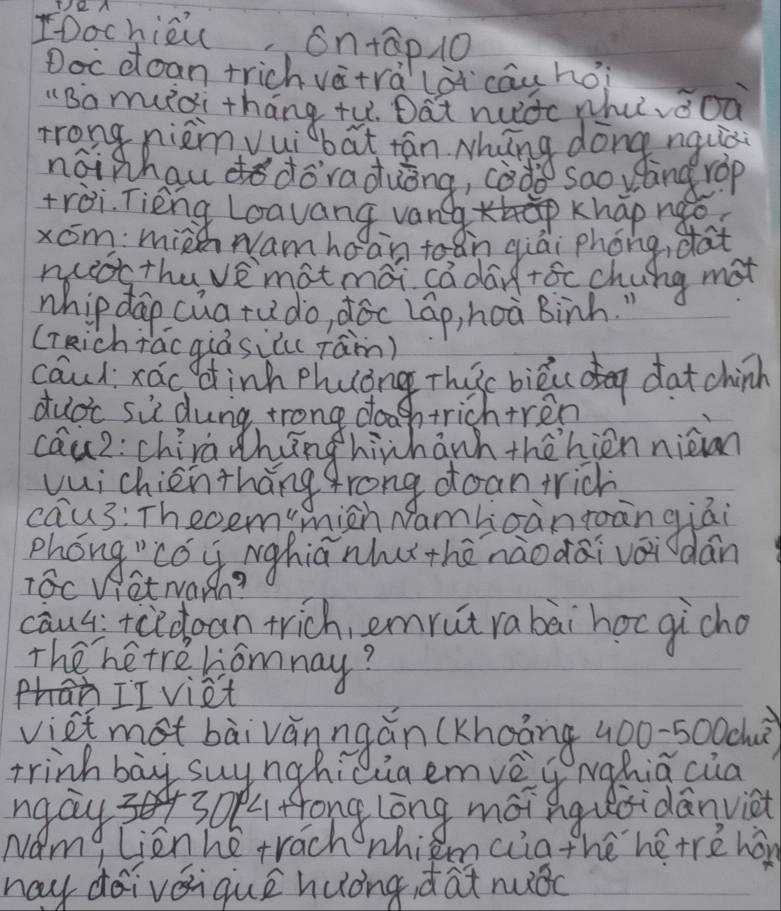 I Đọc hiểu, Ôn tập 10
Đọc đoạn trích và trả lời câu hỏi
"Ba mươi tháng tư. Đất nước như vỡ oà
trong niềm vui bất tận. Những dòng người
nối nhau đổ ra đường, cờ đỏ sao vàng rợp
trời. Tiếng Loa vang vang khắp ngõ,
xóm: miền Nam hoàn toàn giải phóng, đất
nước thu về một mối. cả dân tộc chung một
nhịp đập của tự do, độc lập, hoà Bình."
(Trích tác giả sưu Tầm)
câu 1: xác định Phương Thức biểu đạt chính
được sử dụng trong đoạn trích trên
câu 2: chỉ ra những hình ảnh thể hiện niềm
vui chiến thắng trong đoạn trích
câu 3: Theo em "miền Nam hoàn toàn giải
Phóng" có ý nghĩa như thế nào đối với dân
Tộc Việt Nam?
câu 4: từ đoạn trích, em rút ra bài học gì cho
thế hệ trẻ hôm nay?
Phần II viết
viết một bài văn ngắn (Khoảng 400-500 chữ)
trình bày suy nghĩ của em về ý nghĩa của
ngày 30/4 trong lòng mỗi người dân việt
Nam, Liên hệ trách nhiệm của thế hệ trẻ hôm
nay đối với quê hương, đất nước